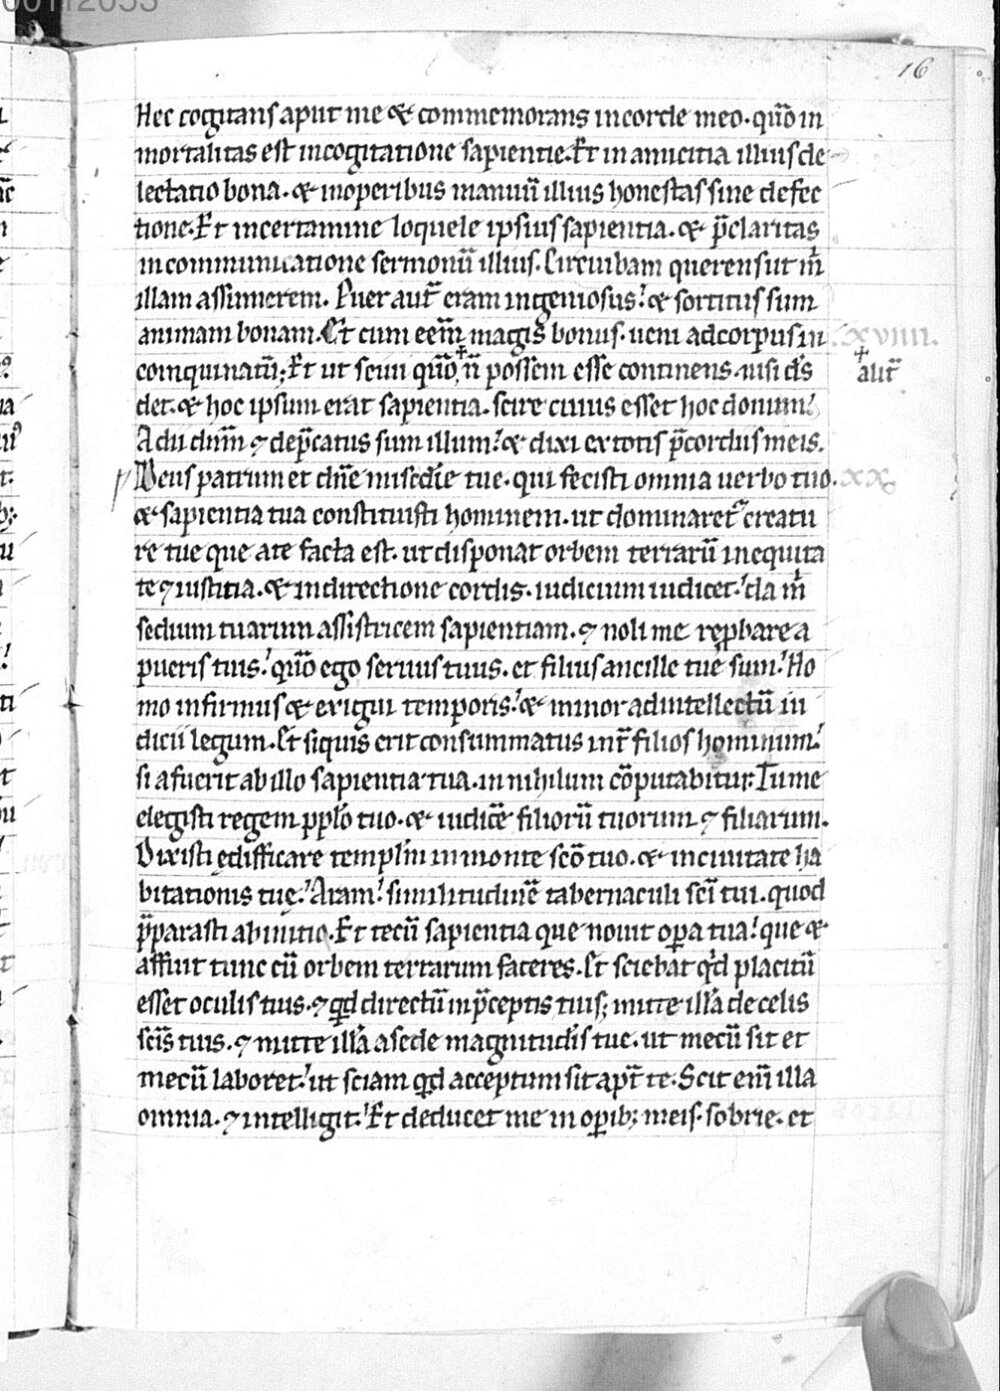 16
Hec cogitans aput me & commemorans in corde meo. qm̄o in
mortalitas est in cogitatione sapientie. Et in amicitia illius de
lectatio bona. & in operibus manuū illius honestas sine defec
tione. Et in certamine loquele ipsius sapientia. & p̄claritas
in communicatione sermonū illius. Circuibam querens ut m̄
illam assumerem. Puer aut̄ eram ingeniosus. & sortitus sum
animam bonam. Et cum eem̄ magis bonus. ueni ad corpus in
xviiii.
coinquinatū; Et ut sciui qm̄o n̄ possem esse continens. nisi ds̄
alit̄
det. & hoc ipsum erat sapientia. scire cuius esset hoc donum.
Adii dnm̄ ⁊ dep̄catus sum illum. & dixi ex totis p̄cordiis meis.
Deus patrum et dn̄e misc̄die tue. qui fecisti omnia uerbo tuo.
xx
& sapientia tua constituisti hominem. ut dominaret̄ creatu
re tue que a te facta est. ut disponat orbem terrarū in equita
te ⁊ iustitia. & in directione cordis. iudicium iudicet. da m̄
sedium tuarum assistricem sapientiam. ⁊ noli me rep̱bare a
pueris tuis. qm̄o ego seruus tuus. et filius ancille tue sum. Ho
mo infirmus & exigui temporis. & minor ad intellectū iu
dicii legum. Et si quis erit consummatus int̄ filios hominum.
si afuerit ab illo sapientia tua. in nihilum cōputabitur. Tu me
elegisti regem ppl̄o tuo. & iudicē filiorū tuorum ⁊ filiarum.
Dixisti ędificare templm̄ in monte scō tuo. & in ciuitate ha
bitationis tuę. Aram. similitudinē tabernaculi scī tui. quod
p̄parasti ab initio. Et tecū sapientia que nouit op̱a tua. que &
affuit tunc cū orbem terrarum faceres. Et sciebat qd̄ placitū
esset oculis tuis. ⁊ qd̄ directū in p̄ceptis tuis; mitte illā de celis
scīs tuis. ⁊ mitte illā a sede magnitudīs tue. ut mecū sit et
mecū laboret. ut sciam qd̄ acceptum sit apt̄ te. Scit em̄ illa
omnia. ⁊ intelligit. Et deducet me in op̱ib; meis. sobrie. et